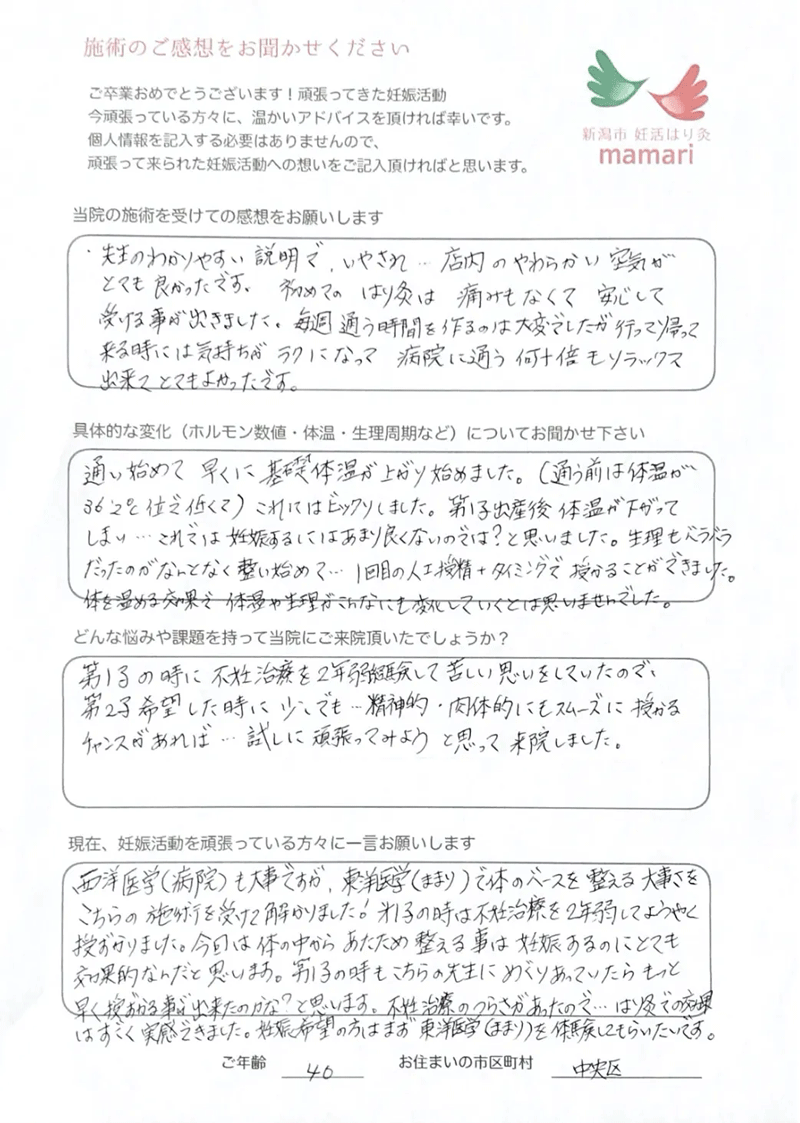 施術のご感想をお聞かせください
ご卒業おめでとうございます！頑張ってきた妊娠活動
今頑張っている方々に、温かいアドバイスを頂ければ幸いです。
個人情報を記入する必要はありませんので、
頑張って来られた妊娠活動への想いをご記入頂ければと思います。
新潟市 妊活はり灸
mamari
当院の施術を受けての感想をお願いします
・先生のわかりやすい説明で、いやされ… 店内のやわらかい空気が
とても良かったです。 初めてのはり灸は 痛みもなくて 安心して
受ける事が出きました。毎週通う時間を作るのは大変でしたが行って帰って
来る時には気持ちがラクになって 病院に通う何十倍もリラックス
出来てとてもよかったです。
具体的な変化（ホルモン数値・体温・生理周期など）についてお聞かせ下さい
通い始めて早くに基礎体温が上がり始めました。（通う前は体温が
36℃2位で低くて）これにはビックリしました。第1子出産後体温が下がって
しまい…これでは妊娠するにはあまり良くないのでは？と思いました。生理もバラバラ
だったのがなんとなく整い始めて… 1回目の人工授精＋タイミングで授かることができました。
体を温める効果で 体温や生理がこんなにも変化していくとは思いませんでした。
どんな悩みや課題を持って当院にご来院頂いたでしょうか？
第1子の時に不妊治療を2年弱経験して苦しい思いをしていたので、
第2子希望した時に少しでも…精神的・肉体的にもスムーズに授かる
チャンスがあれば… 試しに頑張ってみようと思って来院しました。
現在、妊娠活動を頑張っている方々に一言お願いします
西洋医学（病院）も大事ですが、東洋医学（ままり）で体のベースを整える大事さを
こちらの施術を受けて解かりました！ 第1子の時は不妊治療を2年弱してようやく
授ずかりました。今回は体の中からあたため整える事は妊娠するのにとても
効果的なんだと思います。第1子の時もこちらの先生にめぐりあっていたらもっと
早く授ずかる事が出来たのかな？と思います。不妊治療のつらさがあったので… はり灸での効果
はすごく実感できました。妊娠希望の方はまず東洋医学（ままり）を体験してもらいたいです。
ご年齢 40 お住まいの市区町村 中央区